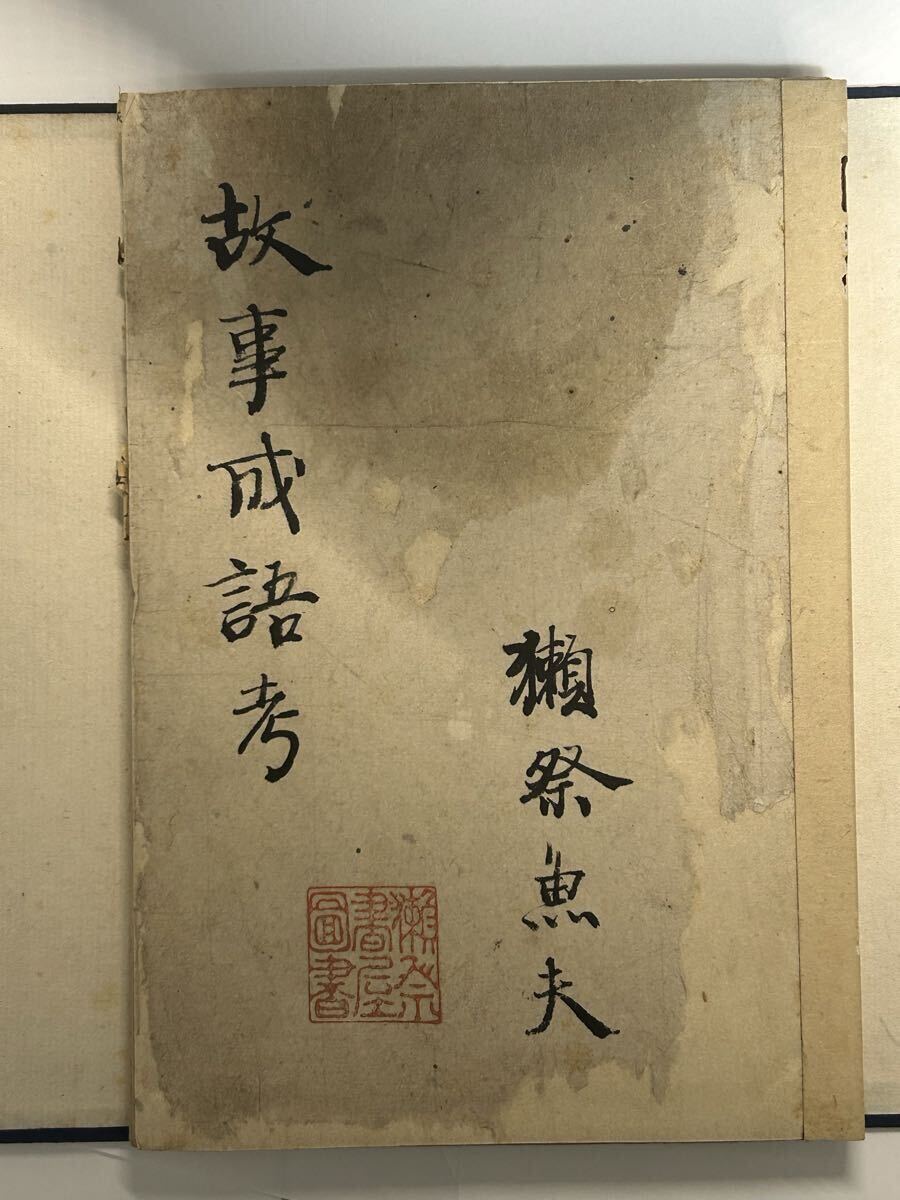 獺祭魚夫
故事成語考
獺祭
書屋
圖書